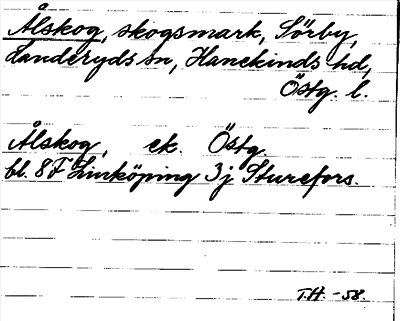 Ålskog, skogsmark, Sörby,
Landeryds sn, Hanekinds hd,
Östg. l.
Ålskog, ek. Östg.
bl. 8F Linköping 3j Sturefors.
T.H. -58.